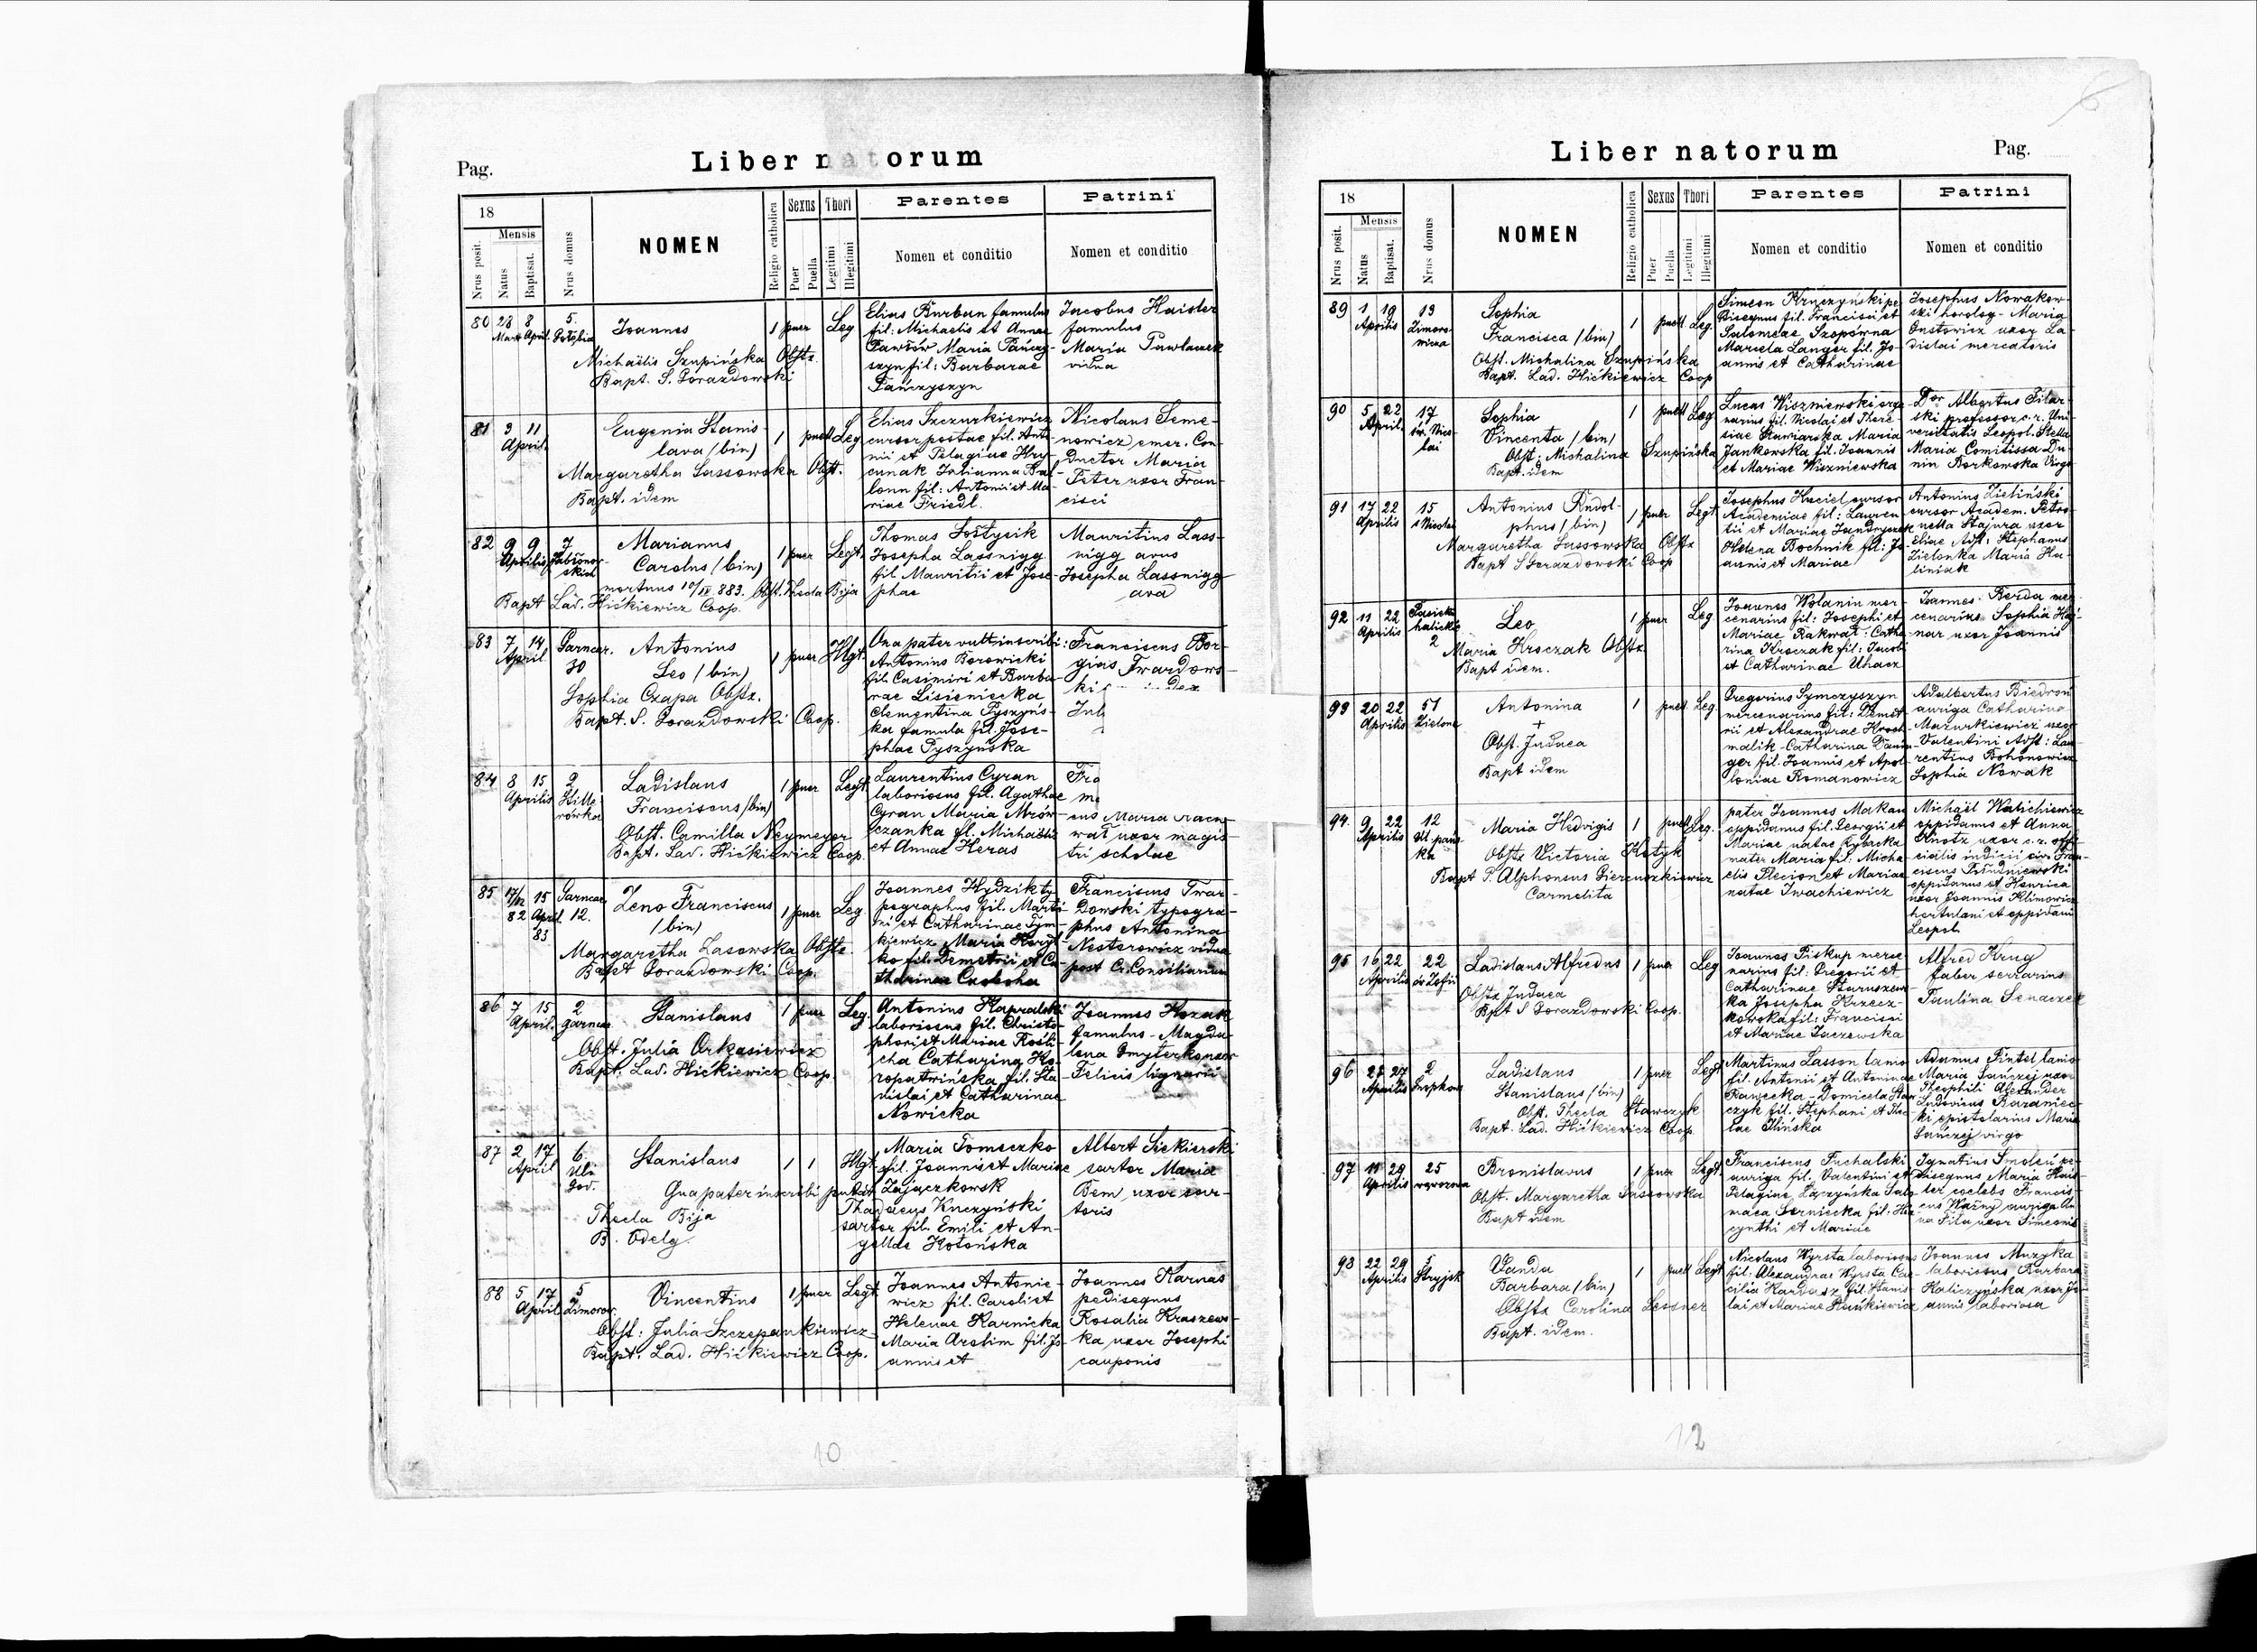 Pag.
Liber natorum
18
Nrus posit.
Mensis
Natus
Baptisat.
Nrus domus
NOMEN
Religio catholica
Sexus
Puer
Puella
Thori
Legitimi
Illegitimi
Parentes
Nomen et conditio
Patrini
Nomen et conditio
80 28 8 5.
Mart April.
Joannes
1 puer Leg
Michaëlis Szupińska Obstx.
Bapt. S. Gorazdowski
Elias Burban famulus
fil: Michaelis et Annae
Pawłów Maria Pańczy-
szyn fil: Barbarae
Pańczyszyn
Jacobus Haister
famulus
Maria Pawlaczek
vidua
81 3 11
April.
Eugenia Stanis-
lava (bin)
1 puell Leg
Margaretha Sassowska Obst.
Bapt. idem
Elias Szczurkiewicz
cursor postae fil. Anto-
nii et Pelagiae Hry-
cunak Julianna Bal-
lonn fil: Antonii et Ma-
riae Friedl.
Nicolaus Seme-
nowicz emer. Con-
ductor Maria
Fiter uxor Fran-
cisci
82 9 9 7
Aprilis Jabłonow-
skich
Marianus
Carolus (bin)
1 puer Legt.
mortuus 10/IV 883. Obst. Thecla Bija
Bapt Lad. Hićkiewicz Coop.
Thomas Sostysik
Josepha Lassnigg
fil Mauritii et Jose-
phae
Mauritius Lass-
nigg avus
Josepha Lassnigg
ava
83 7 14 Garncar.
April 30
Antonius
Leo (bin)
1 puer Illgt.
Sophia Czapa Obstx.
Bapt. S. Gorazdowski Coop.
Qua pater vult inscribi:
Antonius Borowicki
fil. Casimiri et Barba-
rae Lisieniecka
Clementina Pyszyńs-
ka famula fil. Jose-
phae Pyszyńska
Franciscus Bor-
gias Twardows-
ki
Jul
84 8 15 2
Aprilis
Ladislaus
Franciscus (bin)
1 puer Legt
Obst. Camilla Neymeyer
Bapt. Lad. Hićkiewicz Coop.
Laurentius Cyran
laboriosus fil. Agathae
Cyran Maria Mrów-
czanka fil. Michaëlis
et Annae Heras
Fra
me
cus Maria
wał uxor magis-
tri scholae
85 17/12 15 Garncar
82 April. 12.
83
Zeno Franciscus
(bin)
1 puer Leg.
Margaretha Lasowska Obstx
Bapt Gorazdowski Coop.
Joannes Hydzik ty-
pographus fil. Marti-
ni et Catharinae Tym-
kiewicz Maria
ko fil. Demetrii et Ca-
tharinae
Franciscus Twar-
dowski typogra-
phus Antonina
Nestorowicz vidua
post Cr. Consiliarium
86 7 15 2
April. Garncar
Stanislaus
1 puer Leg.
Obst. Julia Arkasiewicz
Bapt. Lad. Hićkiewicz Coop.
Antonius Kapralski
laboriosus fil. Christo-
phori et Mariae Rosli-
cha Catharina Ko-
ropatwińska fil. Sta-
dislai et Catharinae
Nowicka
Joannes Kozak
famulus - Magda-
lena Dmyterko uxor
Felicis lignarii
87 2 17 6.
April
Stanislaus
1 1 Illgt.
Qua pater inscribi putat.
Thecla Bija
B. Odelg.
Maria Tomeczko
fil. Joannis et Mariae
Zajączkowsk
Thadaeus Knczyński
sartor fil. Emili et An-
gellae Hołońska
Albert Siekierski
sartor Maria
Bem uxor sar-
toris
88 5 17 5
April Zimorow.
Vincentius
1 puer Legt
Obst: Julia Szczepankiewicz
Bapt. Lad. Hićkiewicz Coop.
Joannes Antonie-
wicz fil. Caroli et
Helenae Karnicka
Maria Arslim fil. Jo-
annis et
Joannes Karnas
pedisequus
Rosalia Kraszews-
ka uxor Josephi
cauponis
10
Liber natorum
Pag.
18
Nrus posit.
Mensis
Natus
Baptisat.
Nrus domus
NOMEN
Religio catholica
Sexus
Puer
Puella
Thori
Legitimi
Illegitimi
Parentes
Nomen et conditio
Patrini
Nomen et conditio
89 1 19 13
Aprilis Zimoro-
wicza
Sophia
Francisca (bin)
1 puell Leg.
Obst. Michalina Szupińska
Bapt. Lad. Hićkiewicz Coop
Simeon Kruczyński pe-
disequus fil. Francisci et
Salomeae Szopórna
Mariela Langer fil. Jo-
annis et Catharinae
Josephus Nowakow-
ski horolog - Maria
Gustowicz uxor La-
dislai mercatoris
90 5 22 17
April. św. Nico-
lai
Sophia
Vincenta (bin)
1 puell Leg
Obst: Michalina Szupińska
Bapt. idem
Lucas Wiszniewski
narius fil. Nicolai et There-
siae Maria
Jankowska fil. Joannis
et Mariae Wiszniewska
Dor Albertus Pilar-
ski professor c. r. Uni-
versitatis Leopol. Stella
Maria Comitissa Du-
nin Borkowska Virgo
91 17 22 15
Aprilis s Nicolai
Antonius Rudol-
phus (bin)
1 puer Legt
Margaretha Sassowska Obstx
Bapt S Gorazdowski Coop
Josephus Kuciel cursor
Academiae fil: Lauren-
tii et Mariae Jandryszek
Helena Bochnik fil: Jo-
annis et Mariae
Antonius Zieliński
cursor Academ. Petro-
nella Stajura uxor
Eliae Adst: Stephanus
Zielonka Maria Ha-
liniak
92 11 22 Pasieki
Aprilis halickie
2
Leo
1 puer Leg
Maria Hroczak Obstx
Bapt idem.
Joannes Wolanin mer-
cenarius fil: Josephi et
Mariae Rakwał: Catha-
rina Kroczak fil: Jacobi
et Catharinae Uhacz
Joannes Berda mer-
cenarius Sophia
nar uxor Joannis
93 20 22 51
Aprilis Zielona
Antonina
+
1 puell Leg.
Obst. Judaea
Bapt idem
Gregorius Symczyszyn
mercenarius fil: Demet-
rii et Alexandrae
malik - Catharina
ger fil. Joannis et Apol-
loniae Romanowicz
Adalbertus Biedroń
auriga Catharina
Mazurkiewicz uxor
Valentini Adst: Lau-
rentius Bohonowicz
Sophia Nowak
94. 9 22 12
Aprilis
Maria Hedvigis
1 puell Leg.
Obstx Victoria Kotyk
Bapt P. Alphonsus
Carmelita
pater Joannes Makan
oppidanus fil. Georgii et
Mariae natae Rybacka
mater Maria fil: Micha-
elis Slecion et Mariae
natae Iwachiewicz
Michaël Watichiewicz
oppidanus et Anna
Knotz uxor c. r. offi-
cialis indicii civ. Fran-
ciscus
oppidanus et Henrica
uxor Joannis Klimowicz
hortulani et oppidani
Leopol.
95 16 22 22
Aprilis św Zofii
Ladislaus Alfredus
1 puer Leg
Obstx Judaea
Bapt S Gorazdowski Coop.
Joannes Piskup merce-
narius fil: Gregorii et
Catharinae Staruszew-
ka Josepha Krzecz-
kowska fil: Francisci
et Mariae Jaczewska
Alfred Krug
faber serrarius
Paulina Senaczek
96 27 27 2
Aprilis
Ladislaus
Stanislaus (bin)
1 puer Legt
Obst. Thecla Stawczyk
Bapt. Lad. Hićkiewicz Coop.
Martinus Lasson lanio
fil. Antonii et Antoninae
Rawecka - Domicela
czyk fil. Stephani et
Ilińska
Adamus Pintel lanio
Maria Sańczej uxor
Theophili Alexander
Ludovicus Karaniec-
ki epistolarius Maria
Sańczej virgo
97 11 29 25
Aprilis wąwozowa
Bronislavus
1 puer Legt.
Obst. Margaretha Sassowska
Bapt idem
Franciscus Puchalski
auriga fil. Valentini et
Pelagiae Łączyńska Salo-
maea Serniecka fil: Hia-
cynthi et Mariae
Ignatius Smoleń pe-
disequus Maria Hais-
ter coelebs Francis-
cus Ważny auriga An-
na Pita uxor Simeonis
98 22 29 5
Aprilis Stryjsk
Vanda
Barbara (bin)
1 puell Legt
Obstx Carolina Lessner
Bapt. idem.
Nicolaus Wyrsta laboriosus
fil: Alexandrae Wyrsta Cae-
cilia Kardasz fil. Stanis-
lai et Mariae Hankiewicz
Joannes Muzyka
laboriosus Barbara
Kaliczyńska uxor Jo-
annis laboriosa
12